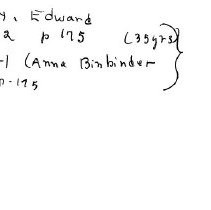 Edward
2 p 175 (35yrs)
(Anna Binbinder
p-175